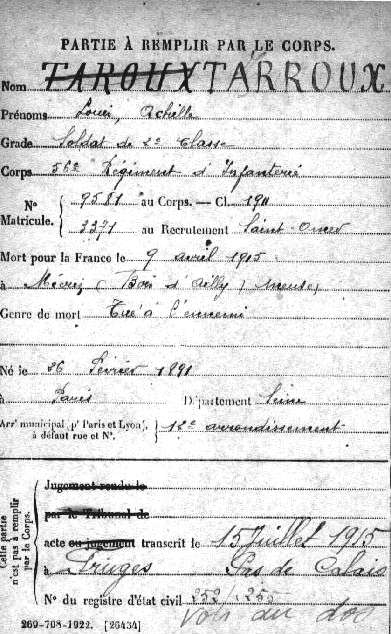 PARTIE À REMPLIR PAR LE CORPS.
Nom TAROUX TARROUX
Prénoms Louis, Achille
Grade Soldat de 2e Classe
Corps 56e Régiment d'Infanterie
N° Matricule. { 9581 au Corps. — Cl. 1911
3371 au Recrutement Saint-Omer
Mort pour la France le 9 avril 1915
à (Bois d'Ailly) (Meuse)
Genre de mort Tué à l'ennemi
Né le 26 Février 1891
à Paris Département Seine
Arrt municipal (pr Paris et Lyon), à défaut rue et N°. } 12e arrondissement
Cette partie n'est pas à remplir par le Corps.
Jugement rendu le
par le Tribunal de
acte ou jugement transcrit le 15 Juillet 1915
à Fruges Pas de Calais
N° du registre d'état civil 252/255
269-708-1922. [26434] Voir au dos